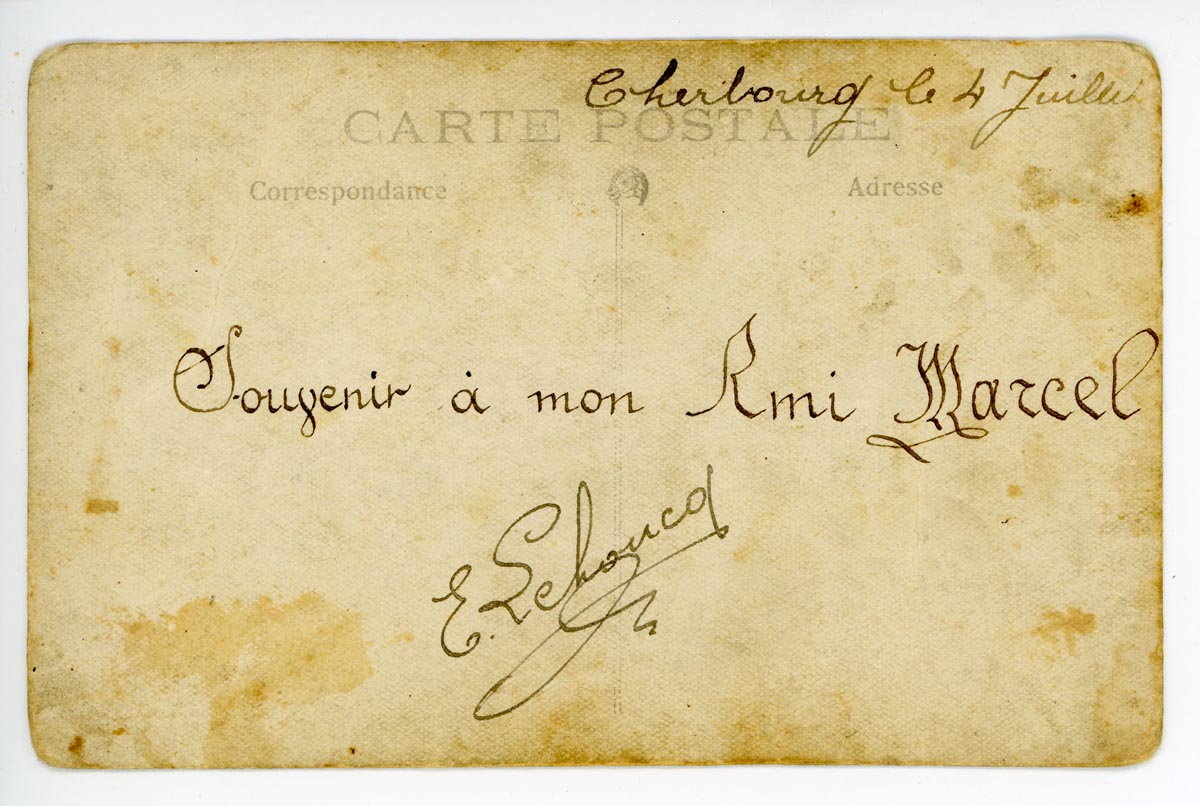 Cherbourg le 4 Juillet
CARTE POSTALE
Correspondance
Adresse
Souvenir à mon Ami Marcel
E. Lehoucq